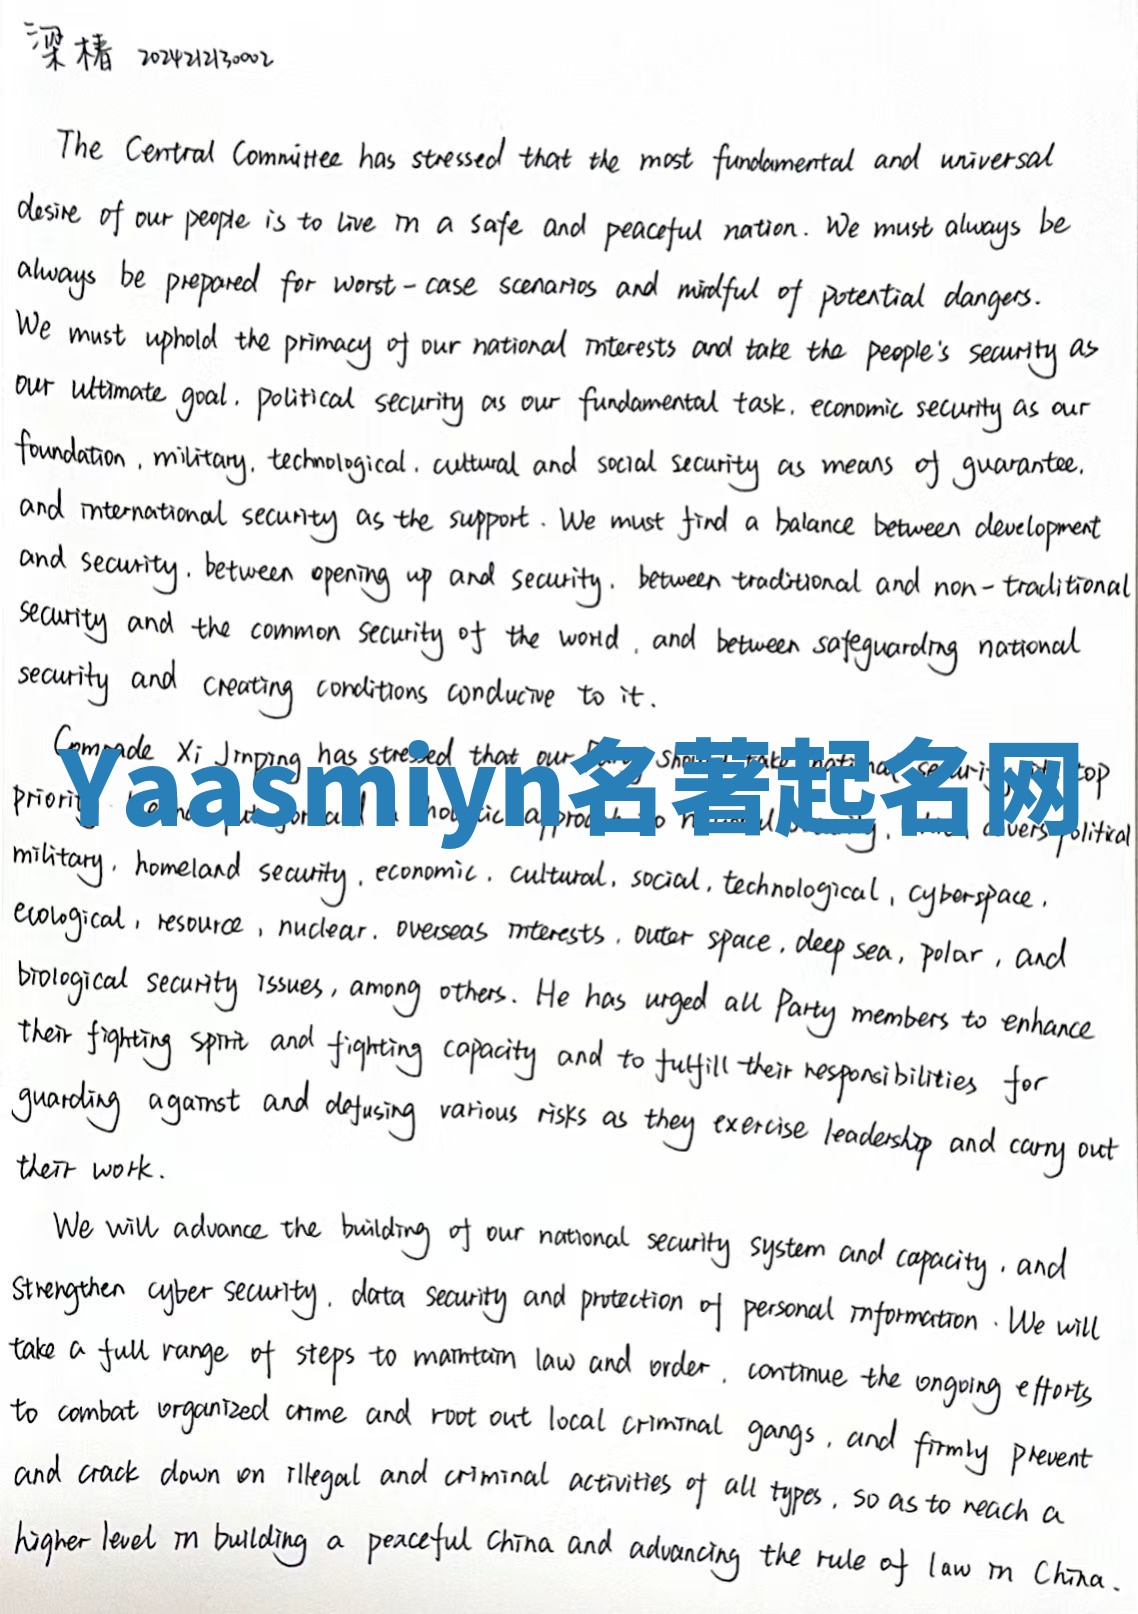 梁椿 2024212130002
The Central Committee has stressed that the most fundamental and universal
desire of our people is to live in a safe and peaceful nation. We must always be
always be prepared for worst-case scenarios and mindful of potential dangers.
We must uphold the primacy of our national interests and take the people's security as
our ultimate goal, political security as our fundamental task, economic security as our
foundation, military, technological, cultural and social security as means of guarantee,
and international security as the support. We must find a balance between development
and security, between opening up and security, between traditional and non-traditional
security and the common security of the world, and between safeguarding national
security and creating conditions conducive to it.
Comrade Xi Jinping has stressed that our should take national security top
Yaasmiyn名著起名网
priority approach to political
military, homeland security, economic, cultural, social, technological, cyberspace,
ecological, resource, nuclear, overseas interests, outer space, deep sea, polar, and
biological security issues, among others. He has urged all Party members to enhance
their fighting spirit and fighting capacity and to fulfill their responsibilities for
guarding against and defusing various risks as they exercise leadership and carry out
their work.
We will advance the building of our national security system and capacity, and
strengthen cyber security, data security and protection of personal information. We will
take a full range of steps to maintain law and order, continue the ongoing efforts
to combat organized crime and root out local criminal gangs, and firmly prevent
and crack down on illegal and criminal activities of all types, so as to reach a
higher level in building a peaceful China and advancing the rule of law in China.